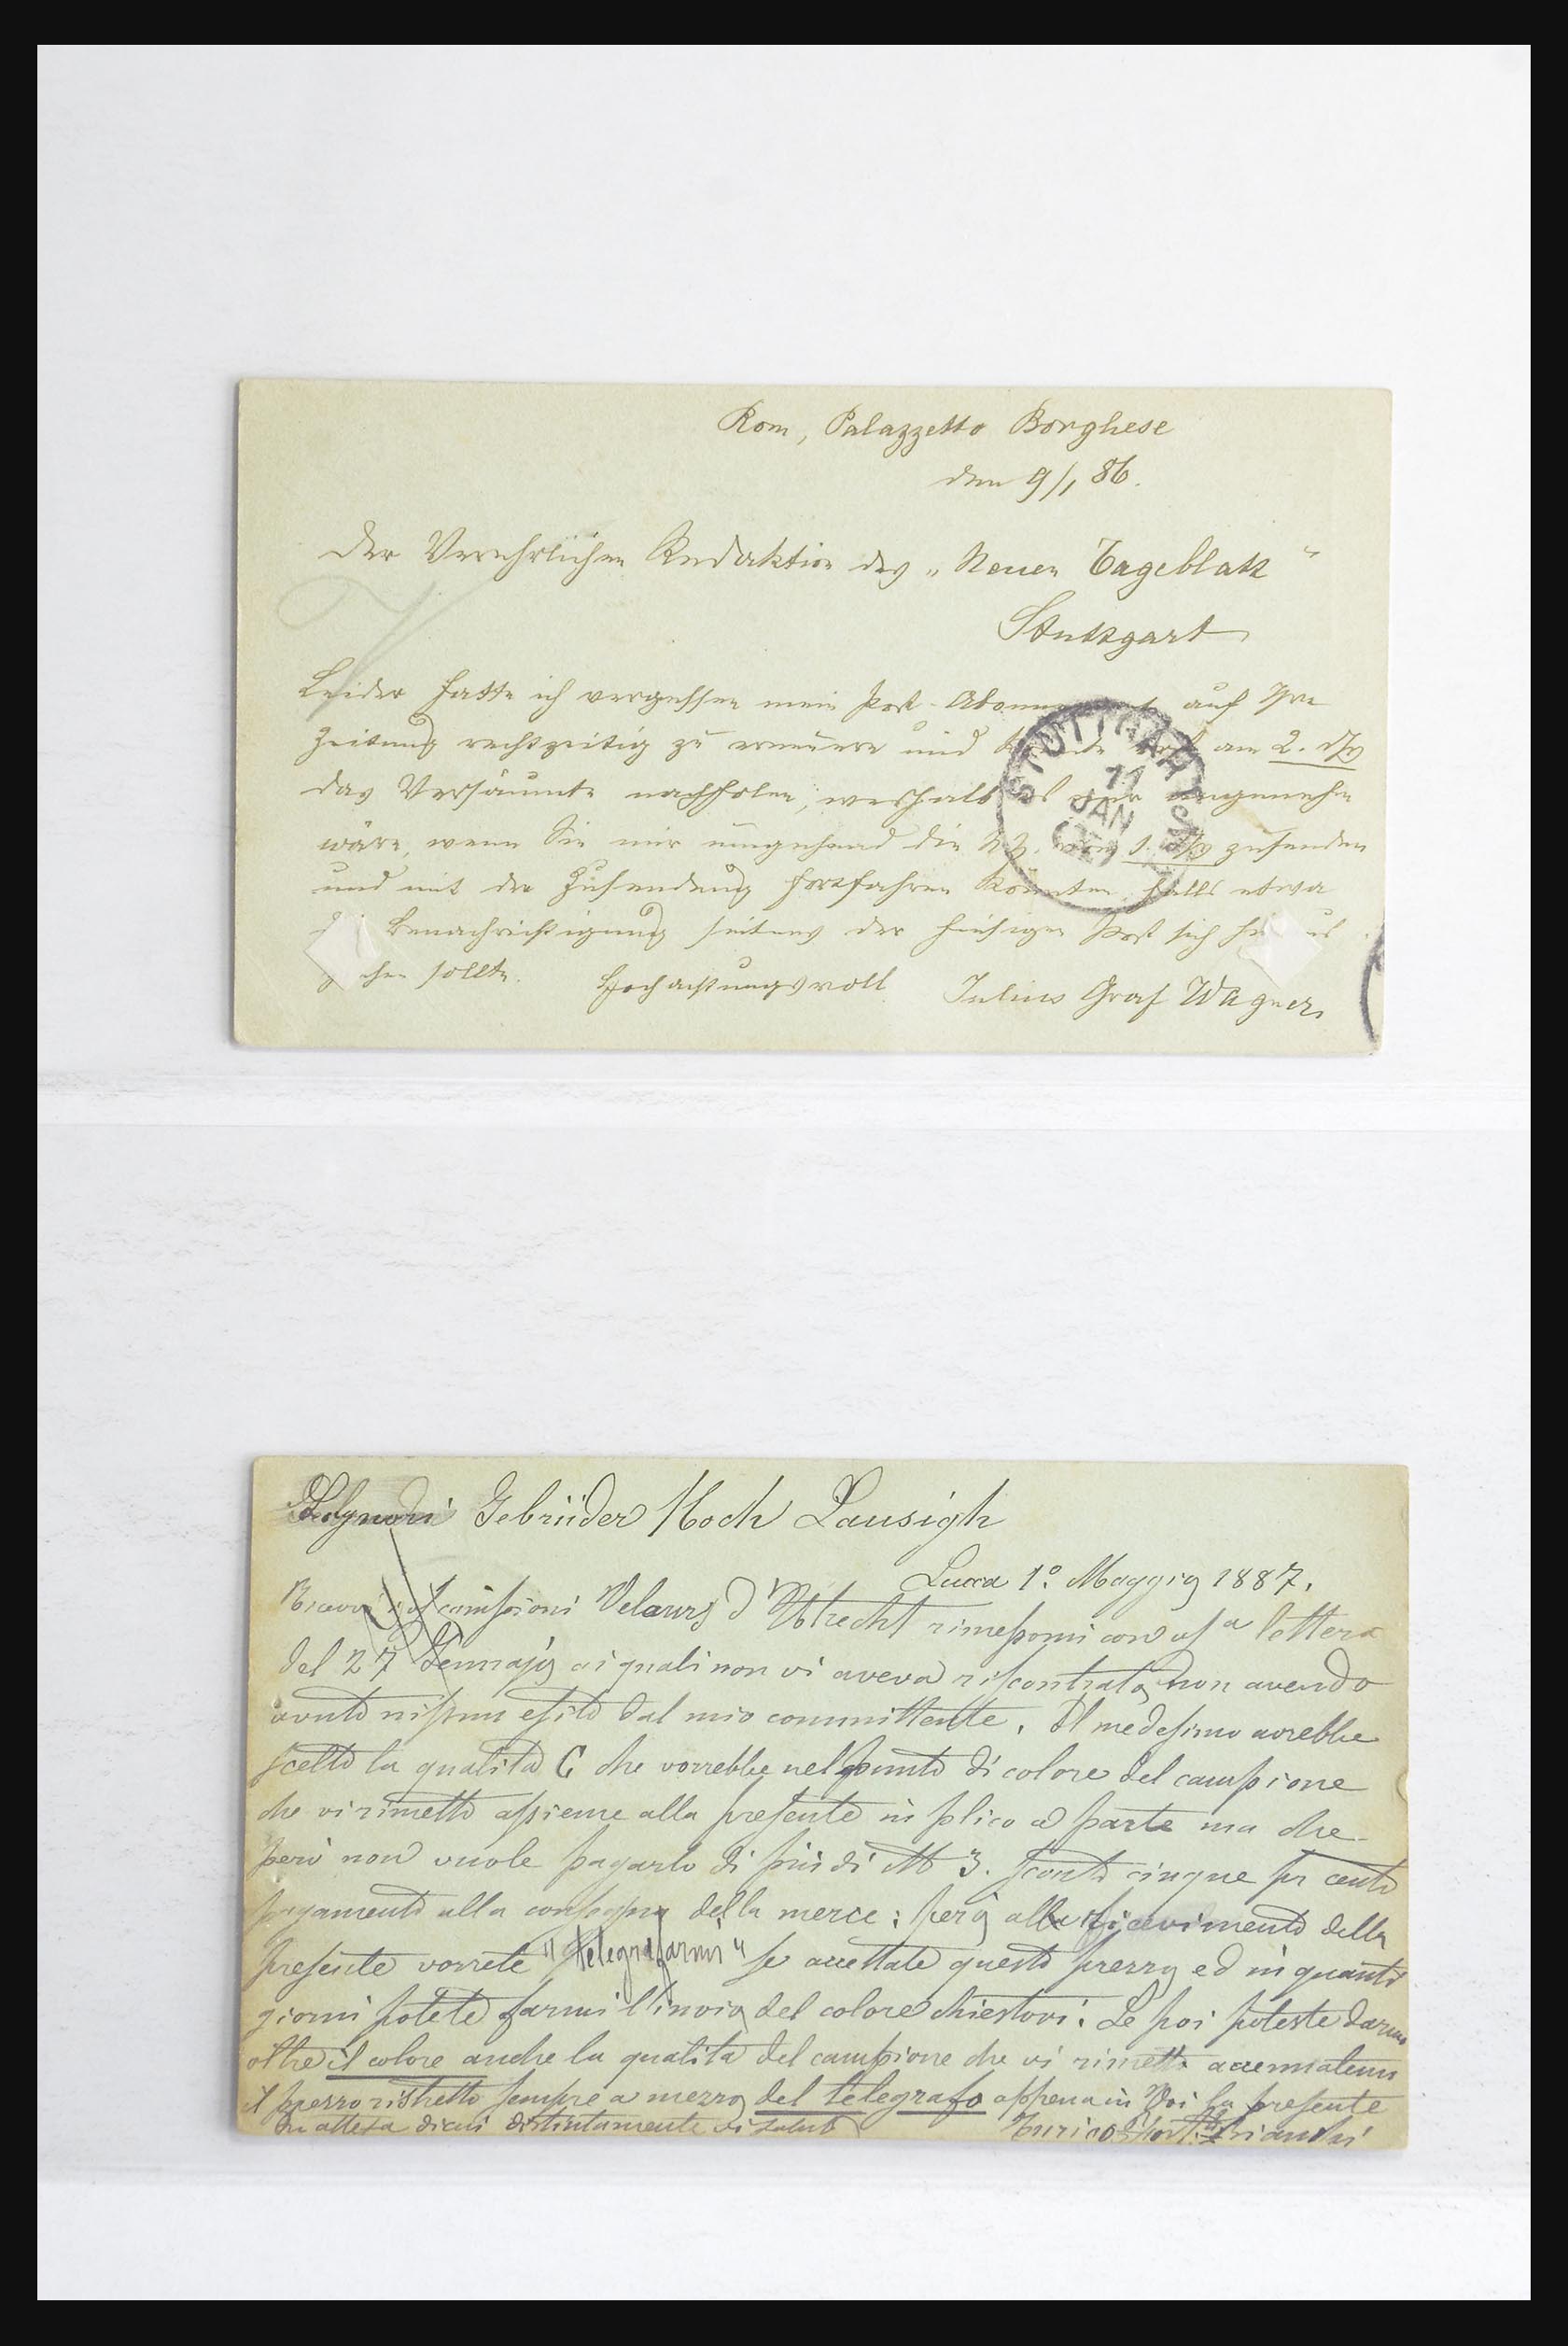 Rom, Palazzetto Borghese
den 9/1 86.
Der Verehrlichen Redaktion des „Neuen Tageblatt"
Stuttgart
Leider hatte ich vergessen mein Post-Abonnement auf Ihre
Zeitung rechtzeitig zu erneuern und konnte erst am 2. d/M
das Versäumte nachholen, weshalb es mir angenehm
wäre, wenn Sie mir umgehend die vom 1. d/M zusenden
und mit der Zusendung fortfahren könnten, falls etwa
Benachrichtigung seitens der hiesigen Post sich
sollte. Hochachtungsvoll Julius Graf Wagner
STUTTGART
11
JAN
Signori Gebrüder Koch Lausigh
Lucca 1º. Maggio 1887.
campioni Velours d'Utrecht rimessomi con vsª lettera
del 27 Gennajo ai quali non vi aveva riscontrato non avendo
avuto nissun esito dal mio committente. Il medesimo avrebbe
scelto la qualità C che vorrebbe nel punto di colore del campione
che vi rimetto assieme alla presente in plico a parte ma che
però non vuole pagarlo di più di M 3. sconto cinque pr cento
pagamento alla consegna della merce; però alla ricevimento della
presente vorrete "telegrafarmi" se accettate questo prezzo ed in quanti
giorni potete farmi l'invio del colore chiestovi. Se poi poteste darmi
oltre il colore anche la qualità del campione che vi rimetto accennatemi
il prezzo ristretto sempre a mezzo del telegrafo appena in Voi la presente
In attesa di cui distintamente vi saluto Enrico